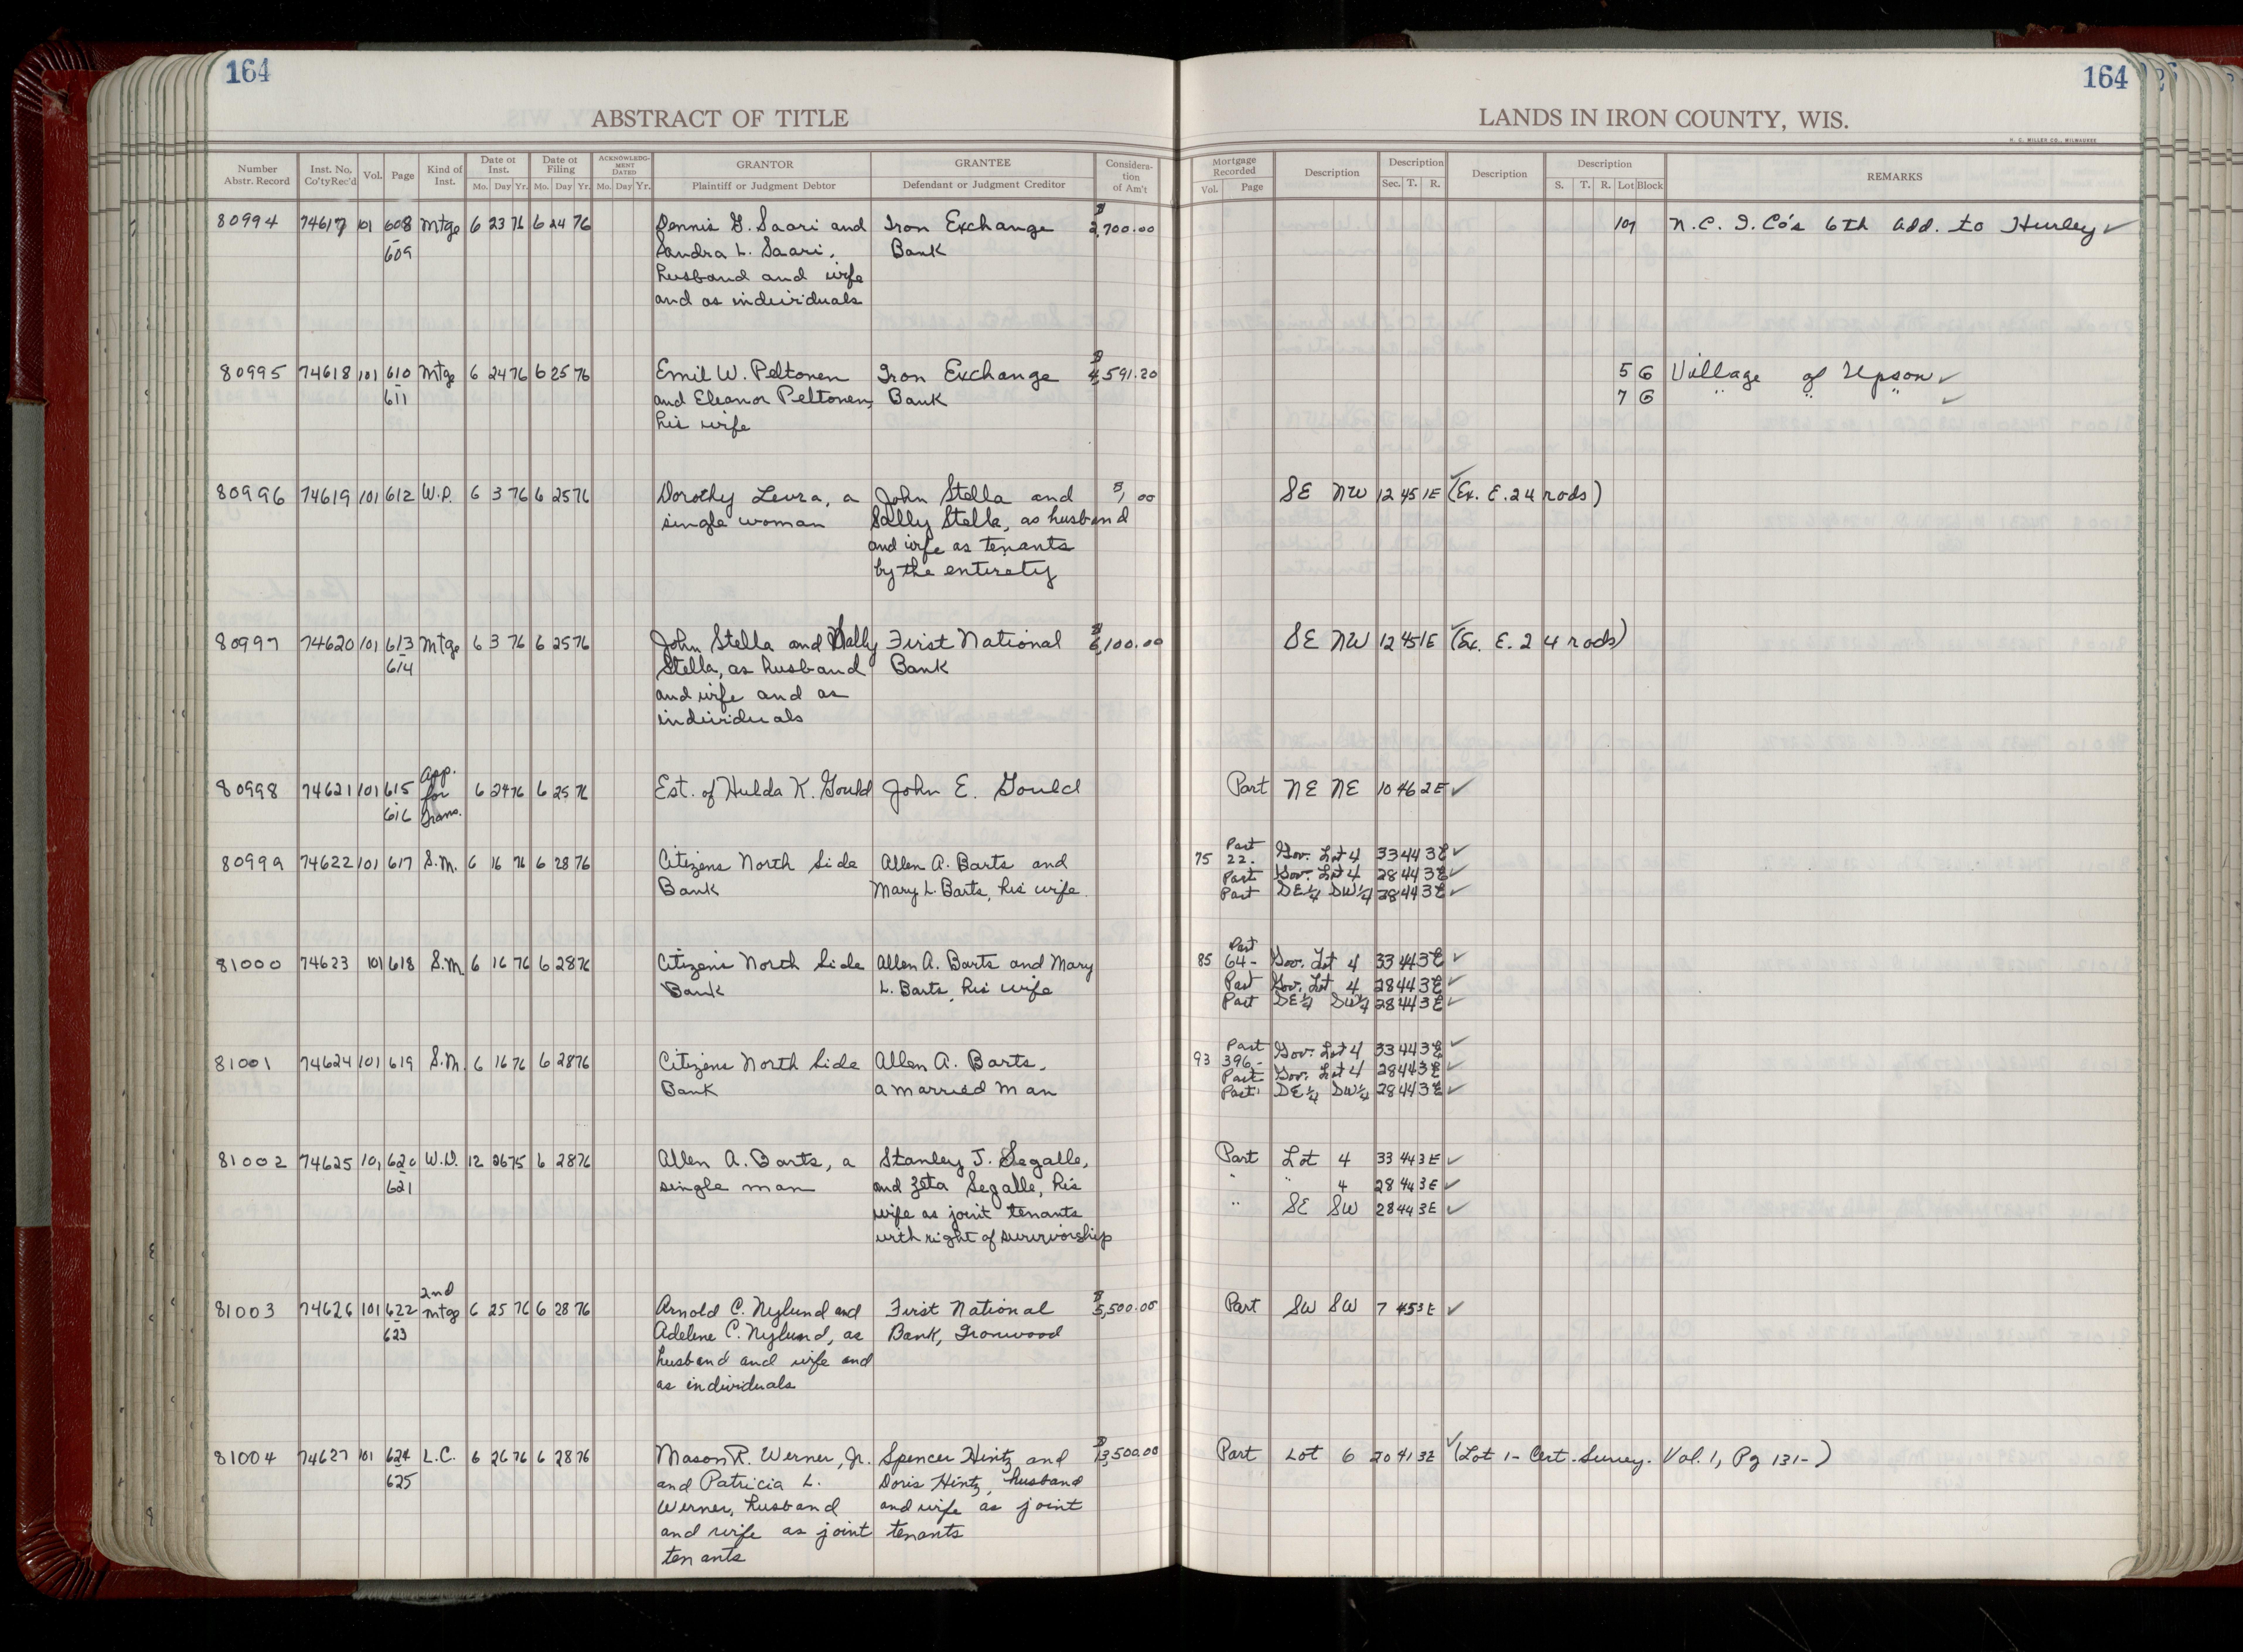 164
164
ABSTRACT OF TITLE
LANDS IN IRON COUNTY, WIS.
H. C. MILLER CO., MILWAUKEE
Number Abstr. Record | Inst. No. Co'ty Rec'd | Vol. | Page | Kind of Inst. | Date of Inst. Mo. Day Yr. | Date of Filing Mo. Day Yr. | ACKNOWLEDGMENT DATED Mo. Day Yr. | GRANTOR Plaintiff or Judgment Debtor | GRANTEE Defendant or Judgment Creditor | Consideration of Am't | Mortgage Recorded Vol. Page | Description | Description Sec. T. R. | Description | Description S. T. R. Lot Block | REMARKS
80994 74617 101 608 Mtge 6 23 76 6 24 76 Dennis G. Saari and Iron Exchange $ 2,700.00 107 N.C.I.Co's 6th Add. to Hurley ✓
- 609 Sandra L. Saari, Bank
husband and wife
and as individuals
80995 74618 101 610 Mtge 6 24 76 6 25 76 Emil W. Peltonen Iron Exchange $ 4,591.20 5 6 Village of Upson ✓
- 611 and Eleanor Peltonen, Bank 7 6 " " " ✓
his wife
80996 74619 101 612 W.D. 6 3 76 6 25 76 Dorothy Leura, a John Stella and $1.00 SE NW 12 45 1E ✓ (Ex. E. 24 rods)
single woman Sally Stella, as husband
and wife as tenants
by the entirety
80997 74620 101 613 Mtge 6 3 76 6 25 76 John Stella and Sally First National $ 6,100.00 SE NW 12 45 1E ✓ (Ex. E. 24 rods)
- 614 Stella, as husband Bank
and wife and as
individuals
80998 74621 101 615 App. for Trans. 6 24 76 6 25 76 Est. of Hulda K. Gould John E. Gould Part NE NE 10 46 2E ✓
- 616
80999 74622 101 617 S.M. 6 16 76 6 28 76 Citizens North Side Allen A. Barts and 75 22- Part Gov. Lot 4 33 44 3E ✓
Bank Mary L. Barts, his wife Part Gov. Lot 4 28 44 3E ✓
Part SE¼ SW¼ 28 44 3E ✓
81000 74623 101 618 S.M. 6 16 76 6 28 76 Citizens North Side Allen A. Barts and Mary 85 64- Part Gov. Lot 4 33 44 3E ✓
Bank L. Barts, his wife Part Gov. Lot 4 28 44 3E ✓
Part SE¼ SW¼ 28 44 3E ✓
81001 74624 101 619 S.M. 6 16 76 6 28 76 Citizens North Side Allen A. Barts, 93 396- Part Gov. Lot 4 33 44 3E ✓
Bank a married man Part Gov. Lot 4 28 44 3E ✓
Part SE¼ SW¼ 28 44 3E ✓
81002 74625 101 620 W.D. 12 26 75 6 28 76 Allen A. Barts, a Stanley J. Segalle, Part Lot 4 33 44 3E ✓
- 621 single man and Zeta Segalle, his " " 4 28 44 3E ✓
wife as joint tenants " SE SW 28 44 3E ✓
with right of survivorship
81003 74626 101 622 2nd Mtge 6 25 76 6 28 76 Arnold C. Nylund and First National $ 5,500.00 Part SW SW 7 45 3E ✓
- 623 Adeline C. Nylund, as Bank, Ironwood
husband and wife and
as individuals
81004 74627 101 624 L.C. 6 26 76 6 28 76 Mason R. Werner, Jr. Spencer Hintz and $ 13,500.00 Part Lot 6 20 41 3E ✓ (Lot 1- Cert. Survey. Vol. 1, Pg 131-)
- 625 and Patricia L. Doris Hintz, husband
Werner, husband and wife as joint
and wife as joint tenants
tenants